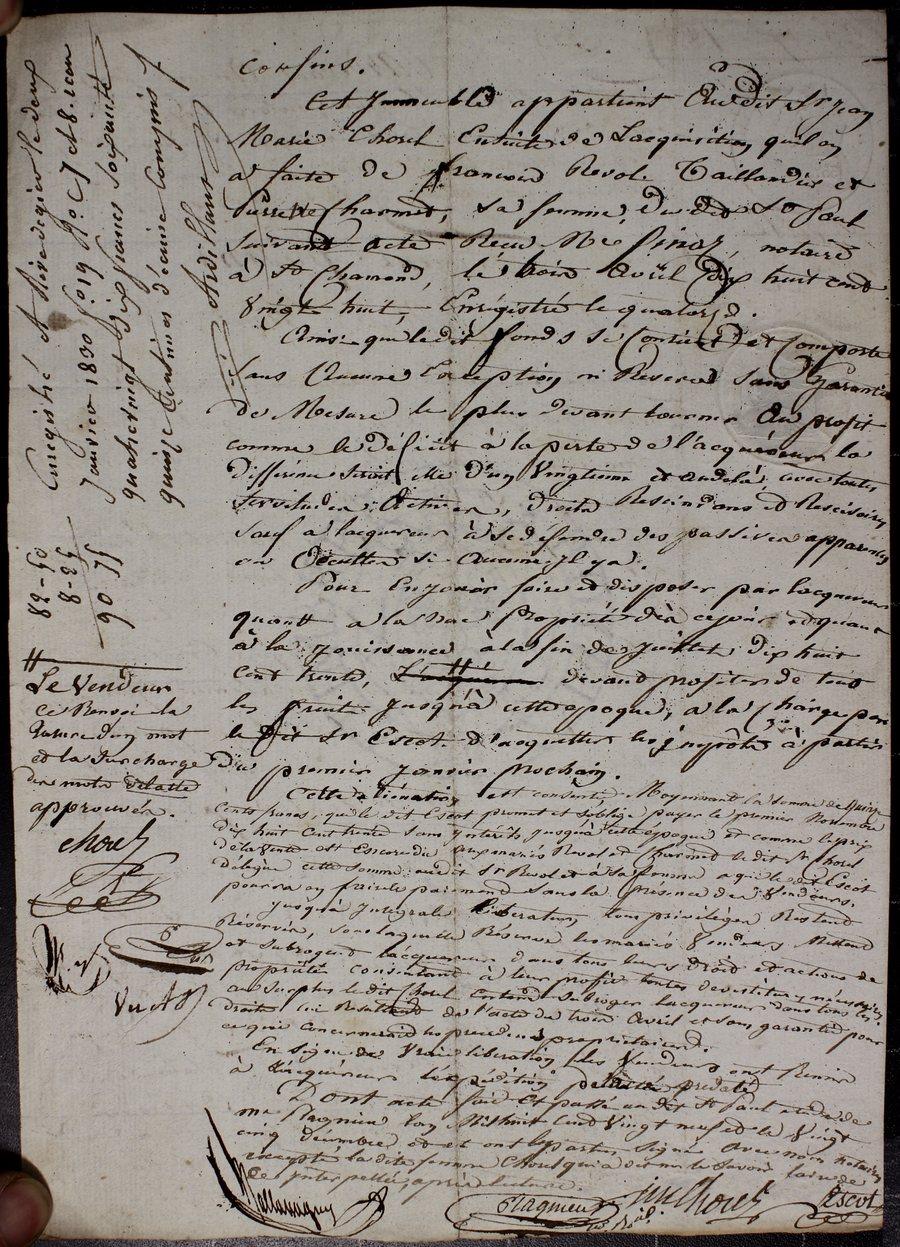 confins.
Cet Immeuble appartient Audit Sr Jean
Marie Chorel Ensuite de Lacquisition quil en
a faite de francois Revol Taillandier et
Pierrette Charmet, sa femme, dudit St Paul
suivant acte Recu Me finaz, notaire
à St Chamond, le trois avril dix huit cent
Vingt huit, Enregistré le quatorze.
Ainsi que ledit fonds se Contient et Comporte
sans Aucune Exception ni Reserve sans Garantie
de Mesure le plus devant tourner Au profit
comme le déficit à la perte de l'acquéreur la
différence seroit elle d'un Vingtieme et audelà, avec toutes
servitudes Actives, droits Rescindans et Rescisoires
sauf a lacquereur à se défendre des passives apparentes
ou Occultes si Aucune il y a.
Pour En jouir faire et disposer par lacquereur
quant a la nue Propriété dès cejour et quant
à la jouissance à la fin de juillet, dix huit
cent trente, devant profiter de tous
les fruits jusqu'à cette epoque, a la charge par
le dit Sr Escot d'acquitter les impôts à partir
du premier janvier prochain.
Cette aliénation est consentie Moyennant la somme de Quinze
cents francs, que le dit Escot promet et soblige payer le premier Novembre
dix huit cent trente sans interets jusqu'à cette epoque et comme le prix
de la Vente est Encore du aux mariés Revol et Charmet le dit Sr Chorel
délègue cette somme audit Sr Revol et à sa femme a qui le dit Escot
pourra en faire le paiement sans la présence des Vendeurs.
jusqu'à Intégrale liberation, tous privileges Restant
Réservés, sous laquelle Réserve les mariés Vendeurs Mettent
et subrogent l'acquereur dans tous leurs droits et actions de
propriété consentant à leur profit toutes devestitures nécessaires
au surplus le dit Chorel entend subroger lacquereur dans tous les
droits lui Resultant de l'acte du trois Avril et sans garantie pour
ce qui concerneroit les precedens propriétaires.
En signe de Vraie liberation les Vendeurs ont Remis
à L'acquéreur l'expédition
Dont acte fait Et passé audit St Paul etude de
me Flagnieu lan Mil huit Cent Vingt neuf et le Vingt
cinq décembre et ont les parties Signé Avec nous notaires
excepté la dite femme Chorel qui a dit ne le savoir faire de
ce interpellée, après lecture.
Flagnieu
Chorel
Escot
Enregistré A Rivedegier le deux
janvier 1830 fo 19 Ro C 7 et 8. recu
quatrevingt dix francs soixante
quinze Centimes décime Compris
82-50
8-25
90 75
Le Vendeur
ce Renvoi la
Rature d'un mot
et la Surcharge
du mot
approuvés.
Chorel